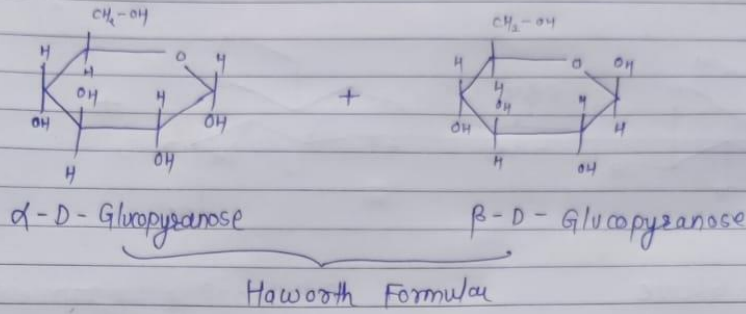 CH₂-OH CH₂-OH
H O H H O OH
H H
OH H OH H
OH OH + OH H
H OH H OH
α-D-Glucopyranose β-D-Glucopyranose
Haworth Formula